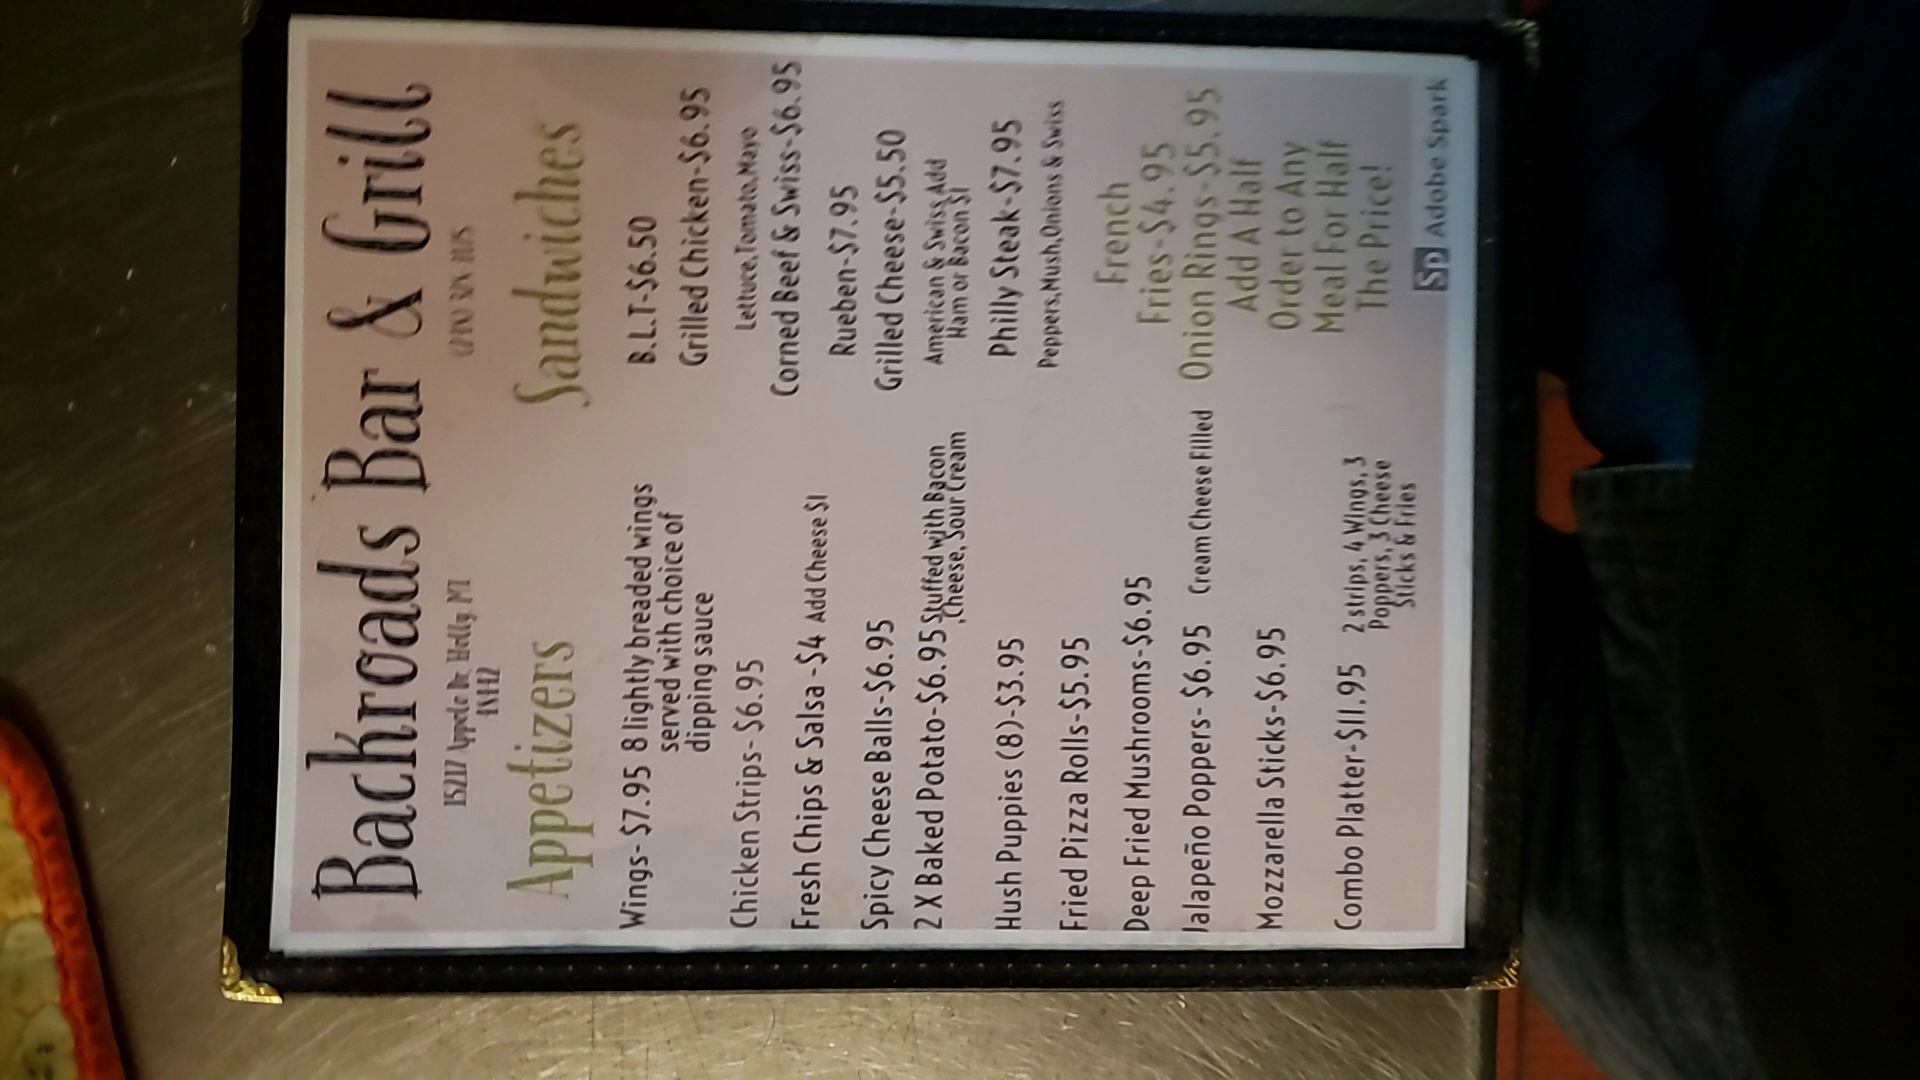 Backroads Bar & Grill
15217 Appele Dr. Holly, MI
48442
Appetizers
Wings- $7.95 8 lightly breaded wings
served with choice of
dipping sauce
Chicken Strips- $6.95
Fresh Chips & Salsa -$4 Add Cheese $1
Spicy Cheese Balls-$6.95
2 X Baked Potato-$6.95 Stuffed with Bacon
,Cheese, Sour Cream
Hush Puppies (8)-$3.95
Fried Pizza Rolls-$5.95
Deep Fried Mushrooms-$6.95
Jalapeño Poppers- $6.95 Cream Cheese Filled
Mozzarella Sticks-$6.95
Combo Platter-$11.95 2 strips, 4 Wings, 3
Poppers, 3 Cheese
Sticks & Fries
Sandwiches
B.L.T-$6.50
Grilled Chicken-$6.95
Lettuce,Tomato,Mayo
Corned Beef & Swiss-$6.95
Rueben-$7.95
Grilled Cheese-$5.50
American & Swiss Add
Ham or Bacon $1
Philly Steak-$7.95
Peppers,Mush,Onions & Swiss
French
Fries-$4.95
Onion Rings-$5.95
Add A Half
Order to Any
Meal For Half
The Price!
Sp Adobe Spark